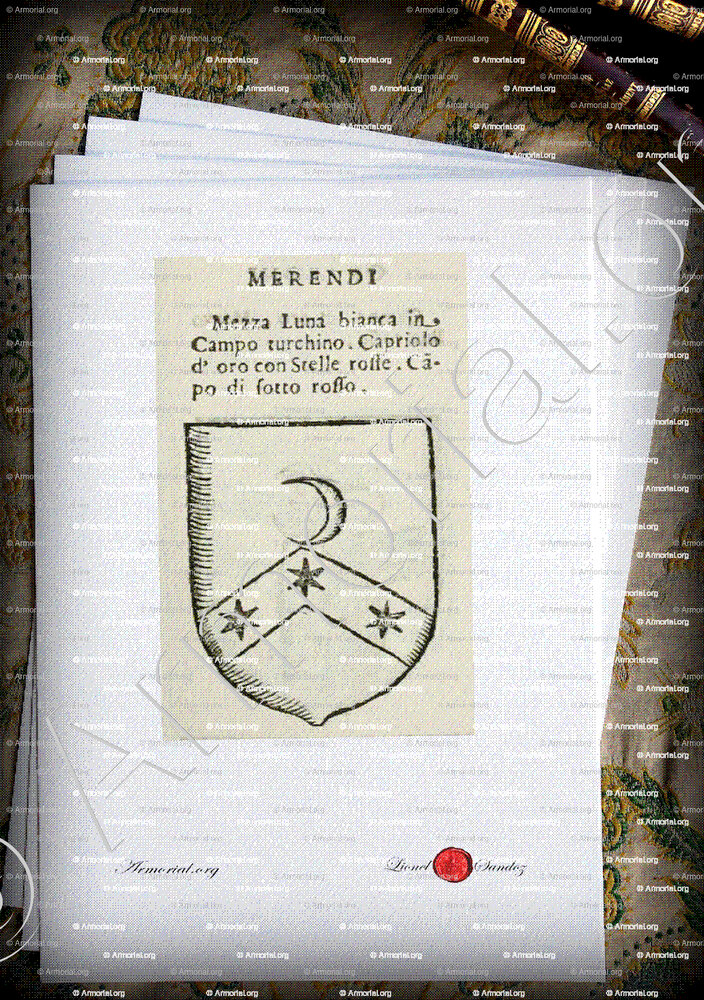 MERENDI
Mezza Luna bianca in
Campo turchino. Capriolo
d' oro con Stelle rosse. Cã-
po di sotto rosso.
Armorial.org
Lionel Sandoz
© Armorial.org